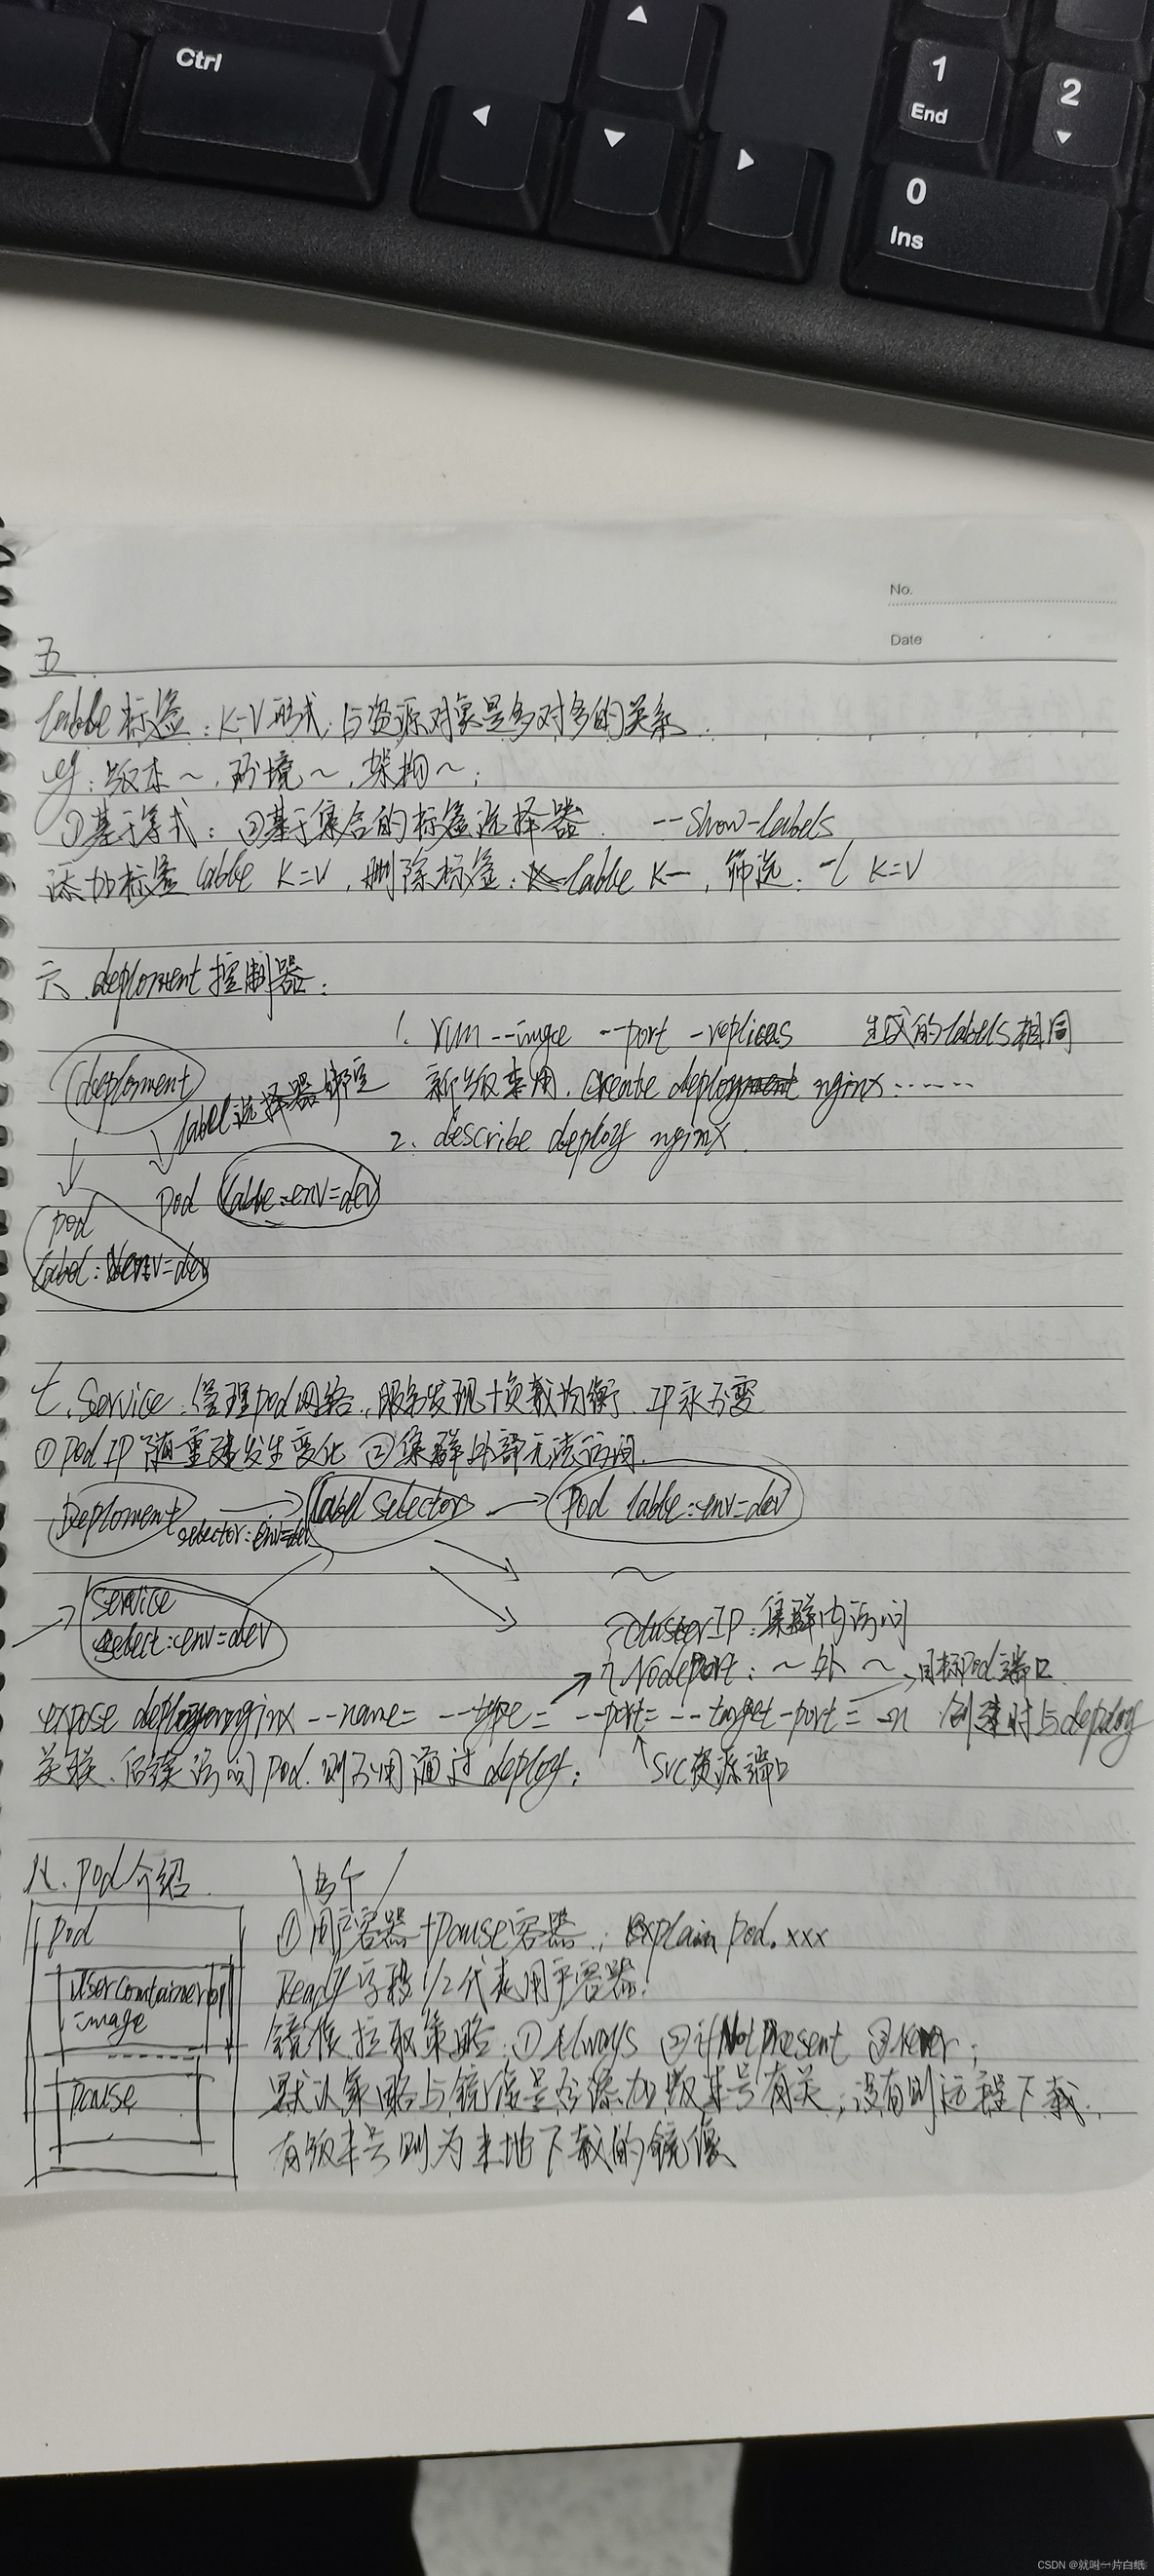 Ctrl
1
End
2
0
Ins
No.
Date
五.
lable 标签：K-V形式，与资源对象是多对多的关系.
eg：版本~，环境~，架构~；
①基于等式：②基于集合的标签选择器. --show-labels
添加标签 lable K=V，删除标签：lable K-，筛选：-l K=V
六.deploment控制器：
1. run --image --port -replicas 生成的labels相同
deploment
label选择器绑定
新版弃用. create deployment nginx……
2. describe deploy nginx.
pod lable:env=dev
pod
label: env=dev
七.Service：管理pod网络，服务发现+负载均衡. IP永不变
①pod IP随重建发生变化 ②集群外部无法访问.
Deploment selector:env=dev label selector pod lable:env=dev
~
Service
select:env=dev
clusterIP：集群内访问
NodePort：~外~ 目标Pod端口
expose deploy nginx --name= --type= --port= --target-port= -n 创建时与deploy
关联.后续访问pod.则不用通过deploy； svc资源端口
八.Pod介绍.
多个
pod
①用户容器+pause容器；explain pod.xxx
usercontainer
image
Ready字段1/2代表用户容器.
镜像拉取策略：①Always ②ifNotPresent ③never；
pause
默认策略与镜像是否添加版本号有关；没有则远程下载.
有版本号则为本地下载的镜像
CSDN @就叫一片白纸